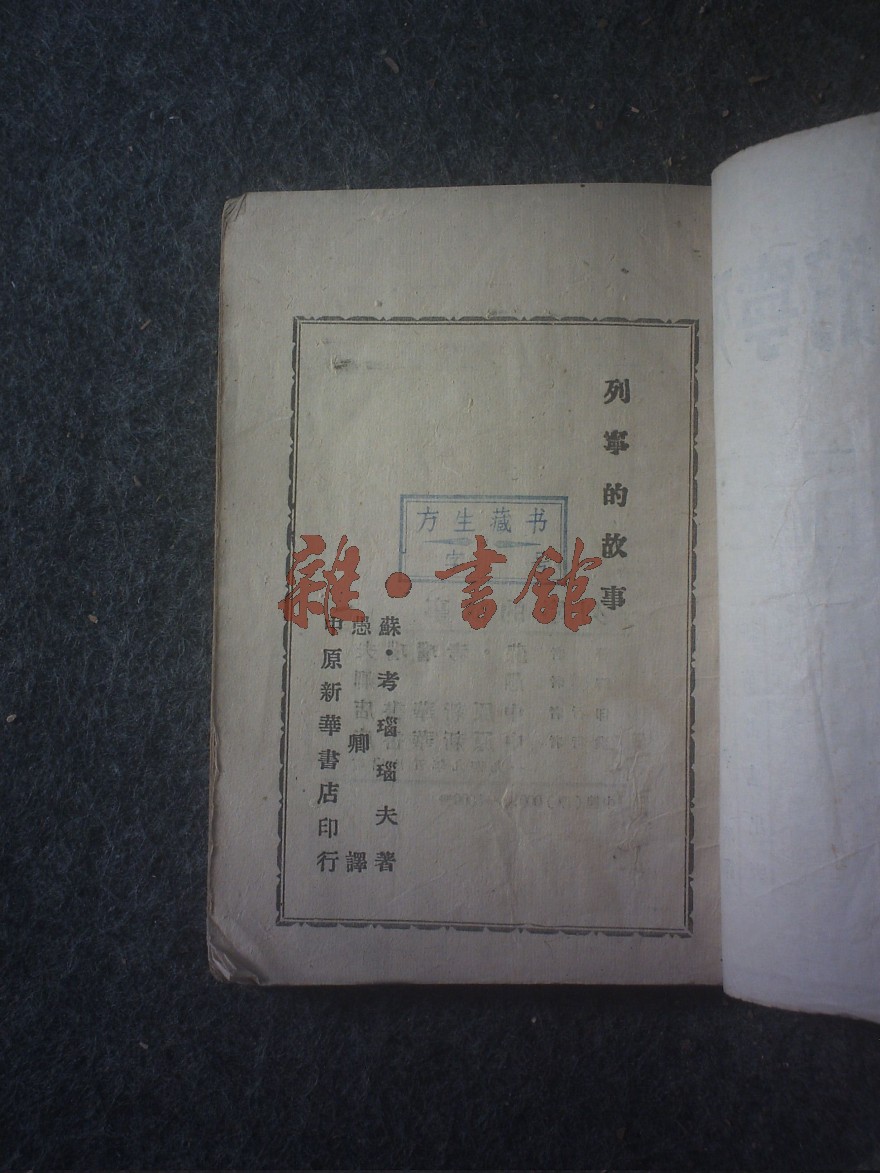 列寧的故事
蘇·考瑙瑙夫著
愚卿譯
中原新華書店印行
方生藏书
字 号
雜·書館